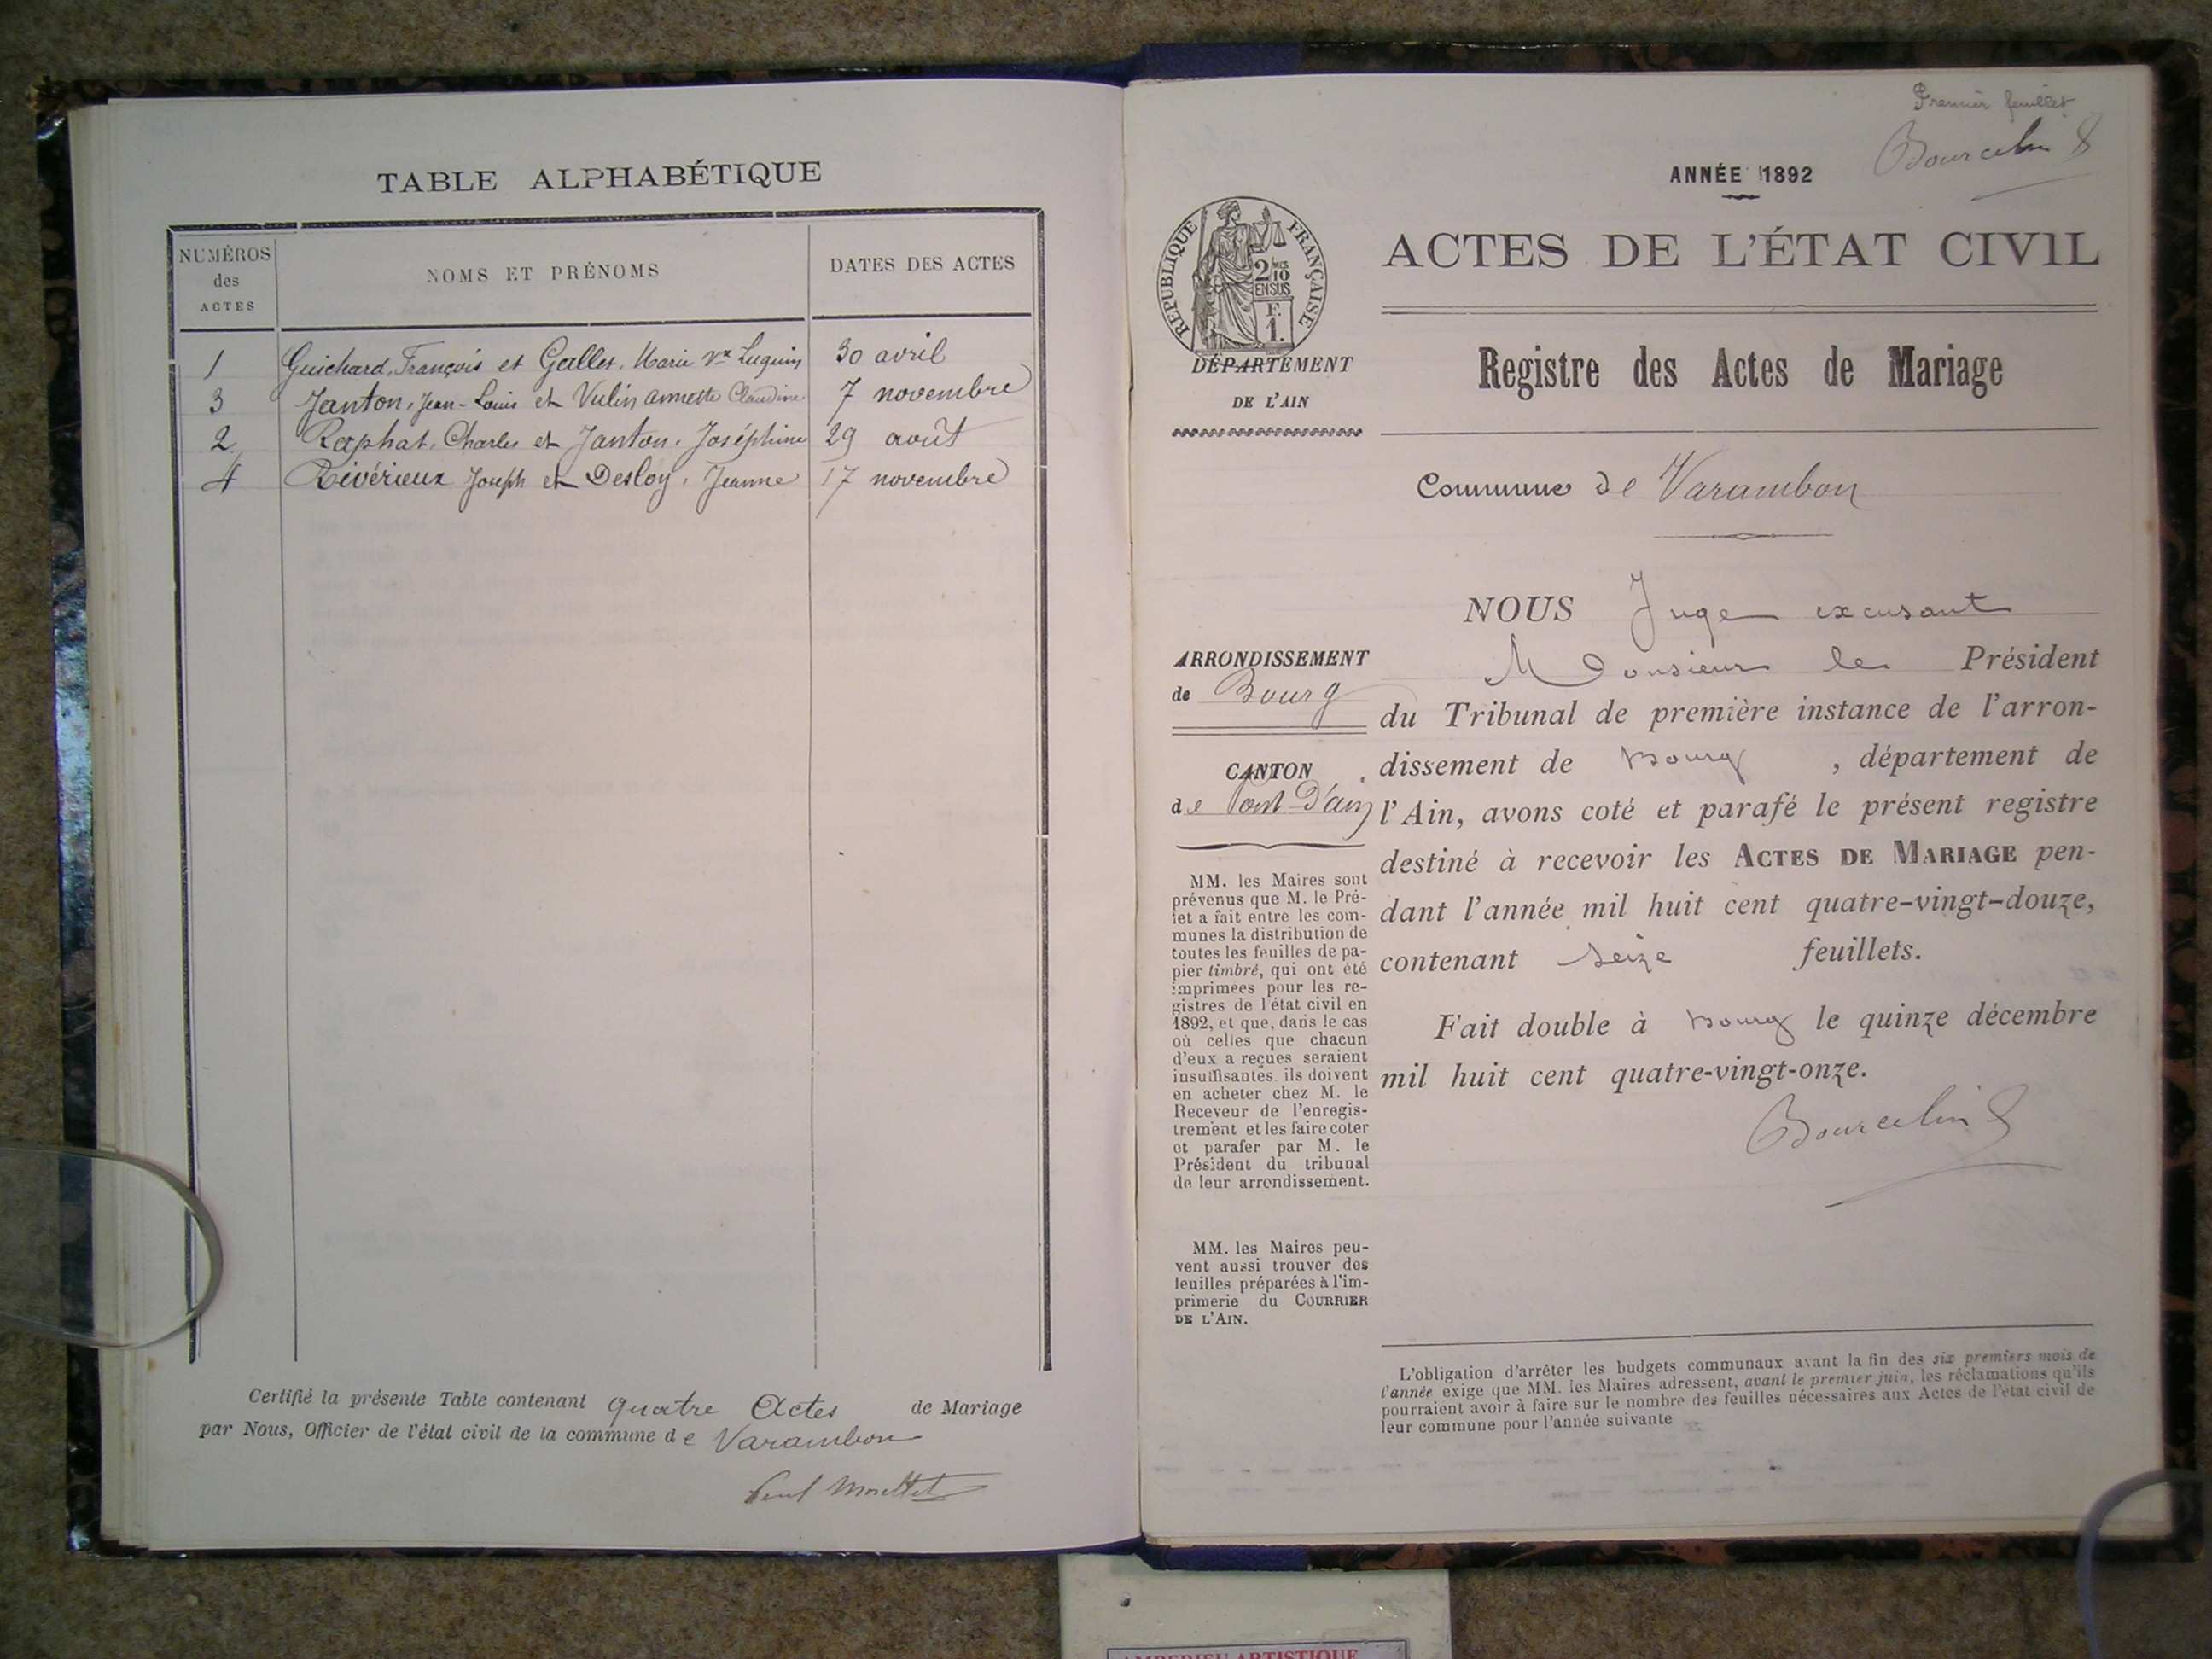 TABLE ALPHABÉTIQUE
NUMÉROS
des
ACTES
NOMS ET PRÉNOMS
DATES DES ACTES
1 Guichard, François et Gallet, Marie Vve Luquin 30 avril
3 Janton, Jean-Louis et Vulin annette Claudine 7 novembre
2 Raphat, Charles et Janton, Joséphine 29 août
4 Rivérieux Joseph et Desloy, Jeanne 17 novembre
Certifié la présente Table contenant quatre Actes de Mariage
par Nous, Officier de l'état civil de la commune de Varambon
Premier feuillet
Bourcelin
ANNÉE 1892
RÉPUBLIQUE FRANÇAISE
2/10
EN SUS
F.
1.
ACTES DE L'ÉTAT CIVIL
DÉPARTEMENT
DE L'AIN
Registre des Actes de Mariage
Commune de Varambon
ARRONDISSEMENT
de Bourg
CANTON
de Pont-D'ain
MM. les Maires sont
prévenus que M. le Pré-
fet a fait entre les com-
munes la distribution de
toutes les feuilles de pa-
pier timbré, qui ont été
imprimées pour les re-
gistres de l'état civil en
1892, et que, dans le cas
où celles que chacun
d'eux a reçues seraient
insuffisantes, ils doivent
en acheter chez M. le
Receveur de l'enregis-
trement et les faire coter
et parafer par M. le
Président du tribunal
de leur arrondissement.
MM. les Maires peu-
vent aussi trouver des
feuilles préparées à l'im-
primerie du COURRIER
DE L'AIN.
NOUS Juge excusant
Monsieur le Président
du Tribunal de première instance de l'arron-
dissement de Bourg, département de
l'Ain, avons coté et parafé le présent registre
destiné à recevoir les ACTES DE MARIAGE pen-
dant l'année mil huit cent quatre-vingt-douze,
contenant seize feuillets.
Fait double à Bourg le quinze décembre
mil huit cent quatre-vingt-onze.
Bourcelin
L'obligation d'arrêter les budgets communaux avant la fin des six premiers mois de
l'année exige que MM. les Maires adressent, avant le premier juin, les réclamations qu'ils
pourraient avoir à faire sur le nombre des feuilles nécessaires aux Actes de l'état civil de
leur commune pour l'année suivante